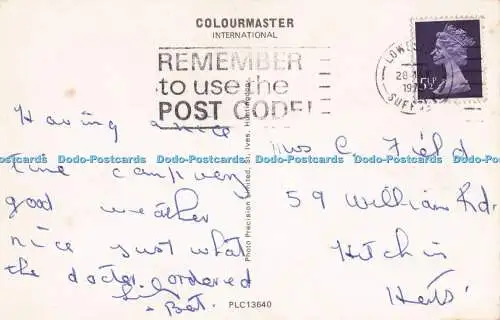 COLOURMASTER
INTERNATIONAL
REMEMBER
to use the
POST CODE!
SUFF
5½
Having a nice
time camping
good weather
nice just what
the doctor ordered
Bet.
Photo Precision Limited, St. Ives, Huntingdon
PLC13640
Mrs C. Field
59 William Rd.
Hitchin
Herts.
Dodo-Postcards Dodo-Postcards Dodo-Postcards Dodo-Postcards Dodo-Postcards Dodo-Postcards